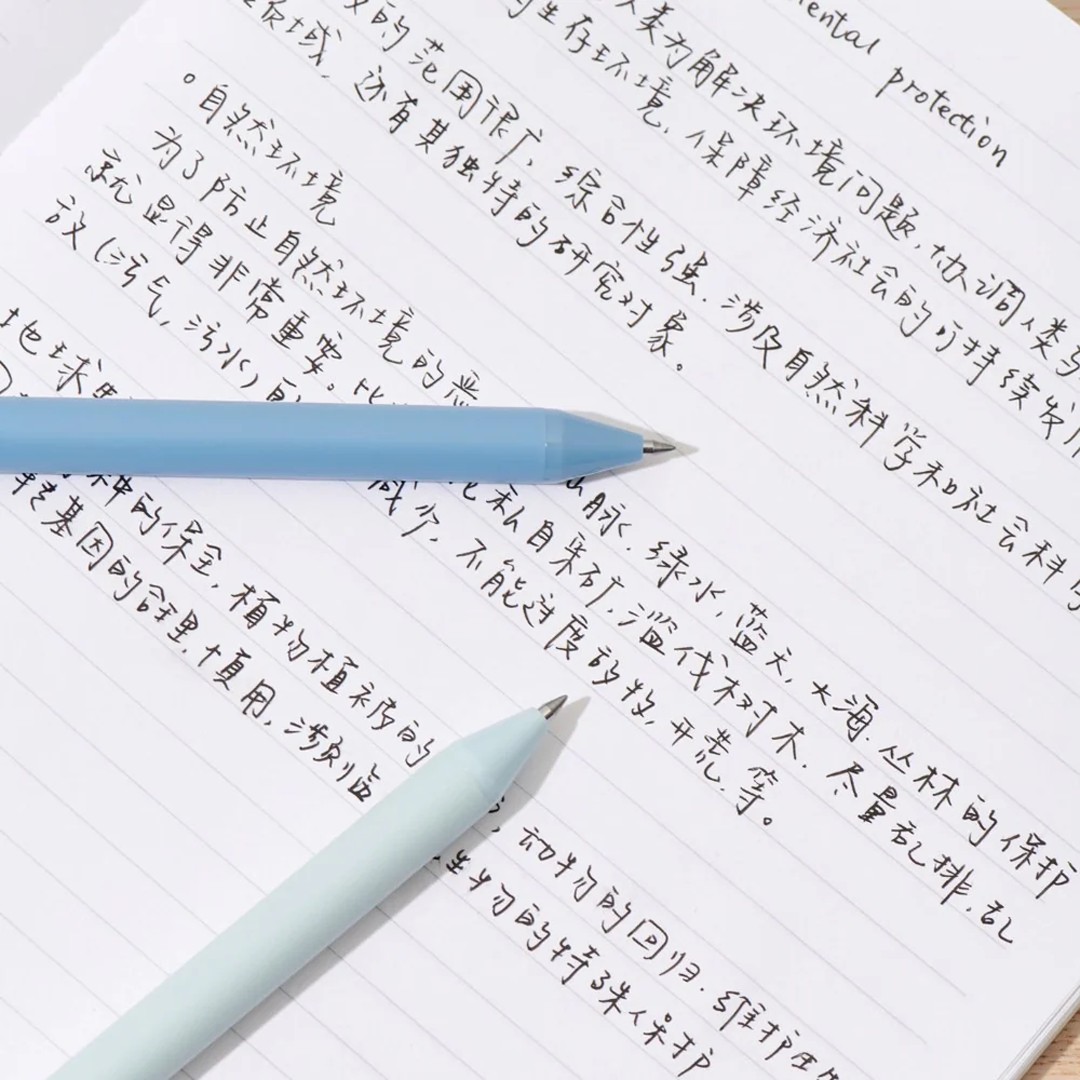 mental protection
人类为解决环境问题,协调人类
生存环境,保障经济社会的可持续发
的范围很广,综合性强.涉及自然科学和社会科
领域,还有其独特的研究对象。
。自然环境
为了防止自然环境的恶 脉.绿水,蓝天,大海.丛林的保护
就显得非常重要。 私自采矿,滥伐树木.尽量乱排.乱
放(污气,污水) 减少.不能过度的 牧,开荒.等。
地球
种的保全,植物植被的 动物的回归.维护生
转基因的合理,慎用,涉及临 生物的特殊保护